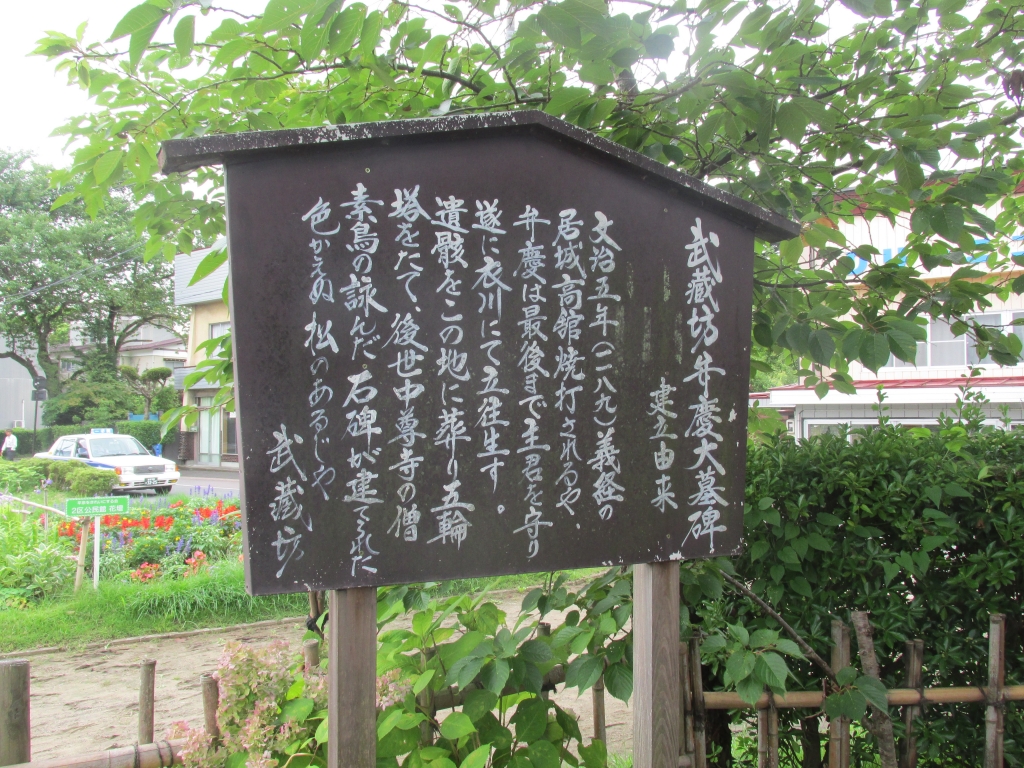 武蔵坊弁慶大墓碑
建立由来
文治五年(一一八九)義経の
居城高館焼打されるや、
弁慶は最後まで主君を守り
遂に衣川にて立往生す。
遺骸をこの地に葬り五輪
塔をたて、後世中尊寺の僧
素鳥の詠んだ石碑が建てられた
色かえぬ松のあるじや
武蔵坊
2区公民館 花壇